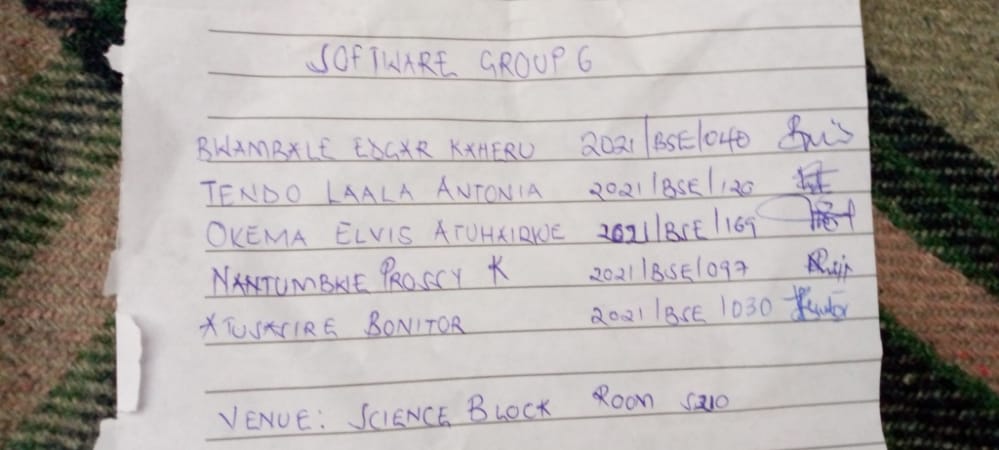 SOFTWARE GROUP 6
BWAMBALE EDGAR KAHERU 2021/BSE/040
TENDO LAALA ANTONIA 2021/BSE/120
OKEMA ELVIS ATUHAIRWE 2021/BSE/169
NANTUMBWE PROSSY K 2021/BSE/097
ATUSASIRE BONITOR 2021/BSE/030
VENUE: SCIENCE BLOCK ROOM S210